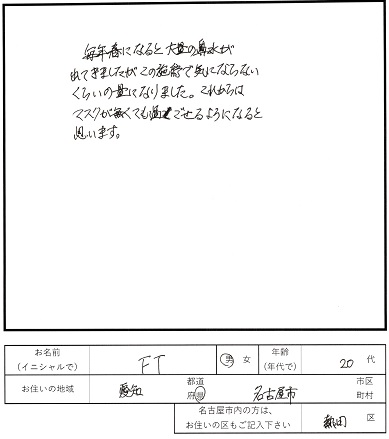 毎年春になると大量の鼻水が
出てきましたがこの施術で気にならない
くらいの量になりました。これからは
マスクが無くても過ごせるようになると
思います。
お名前
(イニシャルで)
FT
男 女
年齢
(年代で)
20 代
お住いの地域
愛知
都道
府県
名古屋市
市区
町村
名古屋市内の方は、
お住いの区もご記入下さい
熱田 区